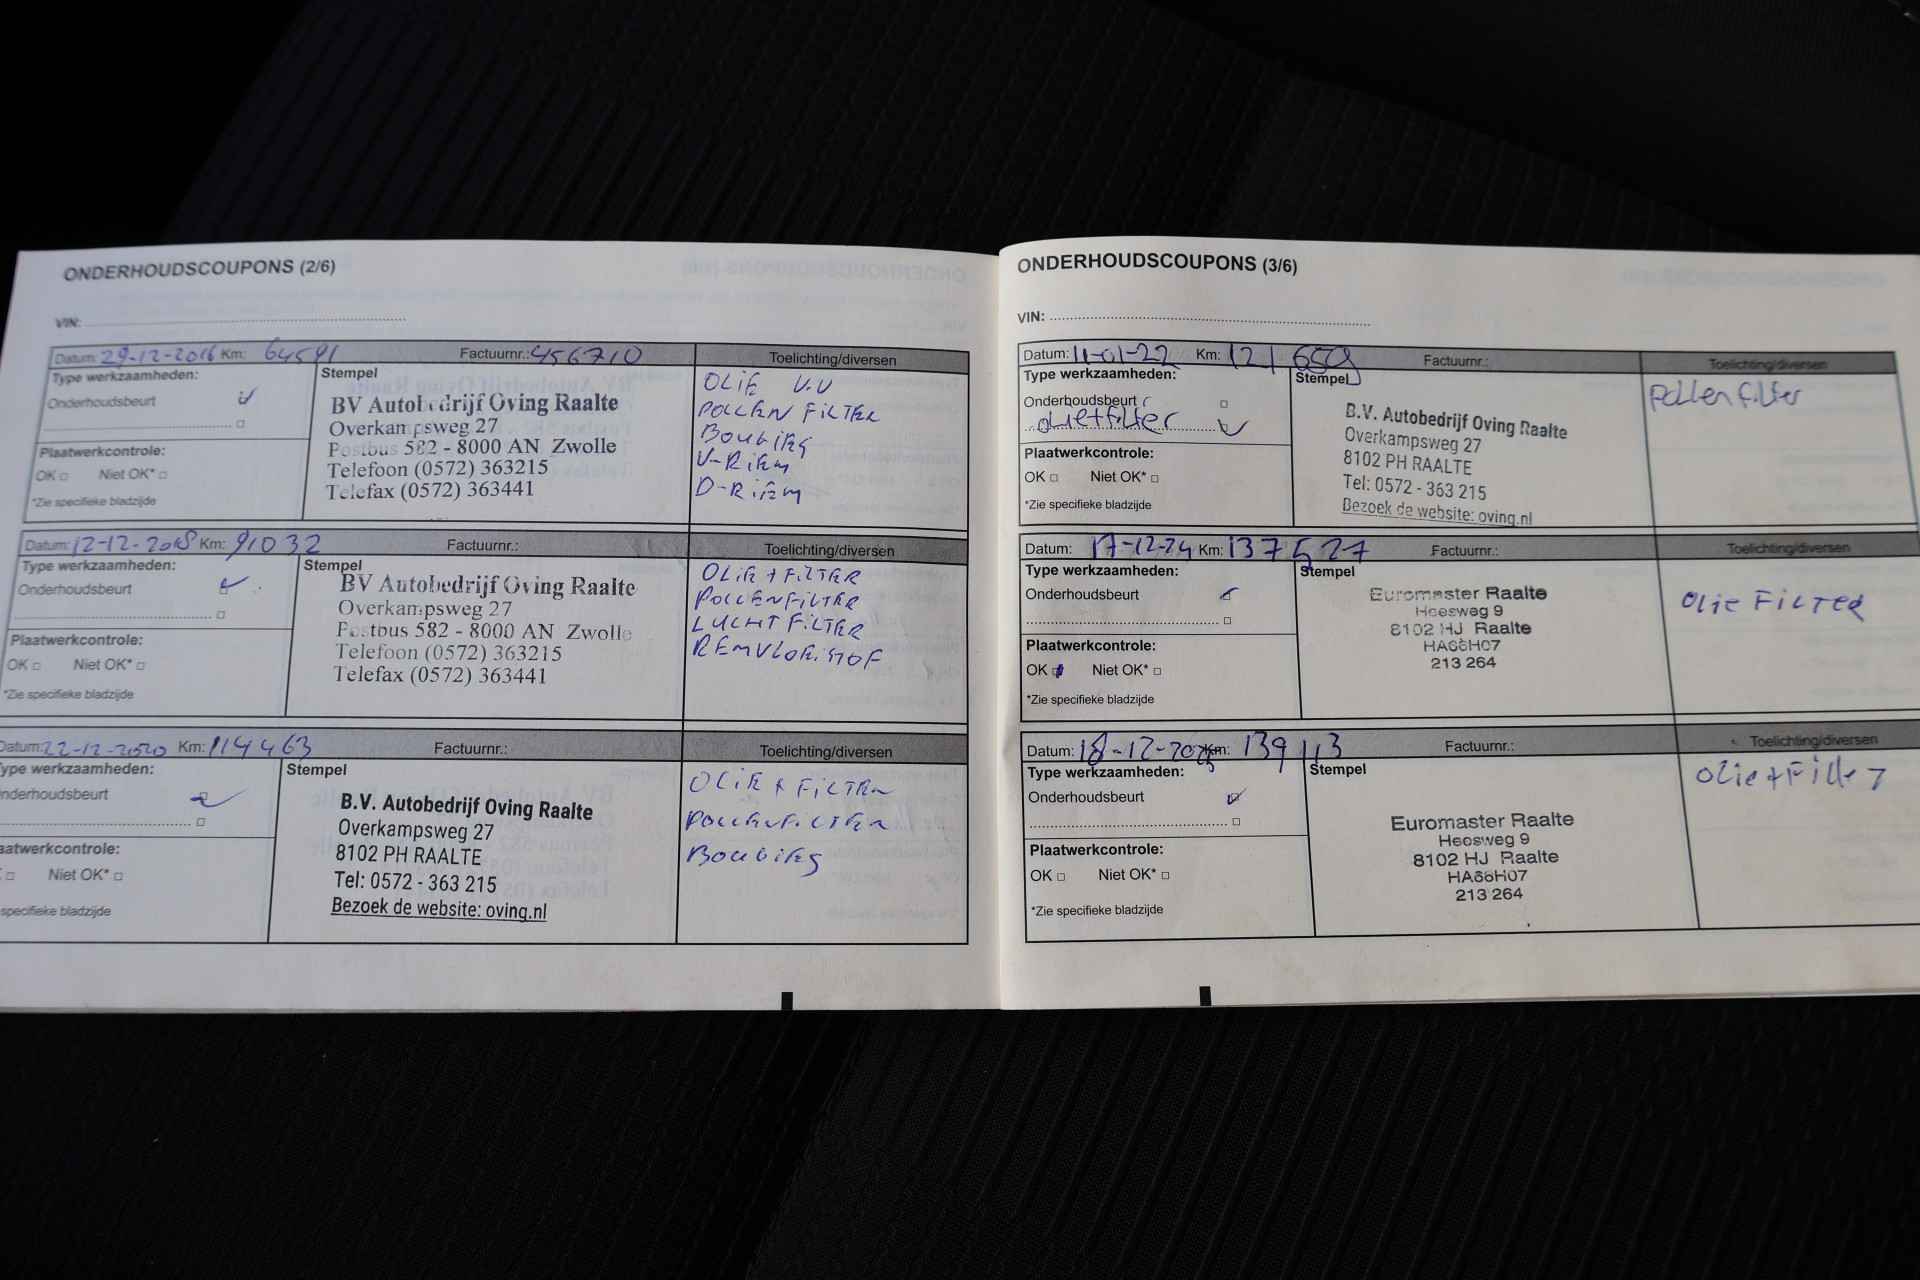 ONDERHOUDSCOUPONS (2/6)
VIN:
Datum: 29-12-2016 Km: 64591 Factuurnr.: 456710 Toelichting/diversen
Type werkzaamheden:
Onderhoudsbeurt
Plaatwerkcontrole:
OK Niet OK*
*Zie specifieke bladzijde
Stempel
BV Autobedrijf Oving Raalte
Overkampsweg 27
Postbus 582 - 8000 AN Zwolle
Telefoon (0572) 363215
Telefax (0572) 363441
OLIE V.V
POLLEN FILTER
BOUGIES
V-RIEM
D-RIEM
Datum: 12-12-2018 Km: 91032 Factuurnr.: Toelichting/diversen
Type werkzaamheden:
Onderhoudsbeurt
Plaatwerkcontrole:
OK Niet OK*
*Zie specifieke bladzijde
Stempel
BV Autobedrijf Oving Raalte
Overkampsweg 27
Postbus 582 - 8000 AN Zwolle
Telefoon (0572) 363215
Telefax (0572) 363441
OLIE + FILTER
POLLENFILTER
LUCHTFILTER
REMVLOEISTOF
Datum: 22-12-2020 Km: 114463 Factuurnr.: Toelichting/diversen
Type werkzaamheden:
nderhoudsbeurt
aatwerkcontrole:
Niet OK*
specifieke bladzijde
Stempel
B.V. Autobedrijf Oving Raalte
Overkampsweg 27
8102 PH RAALTE
Tel: 0572 - 363 215
Bezoek de website: oving.nl
OLIE + FILTER
POLLENFILTER
BOUGIES
ONDERHOUDSCOUPONS (3/6)
VIN:
Datum: 11-01-22 Km: 121 659 Factuurnr.: Toelichting/diversen
Type werkzaamheden:
Onderhoudsbeurt
olie+filter
Plaatwerkcontrole:
OK Niet OK*
*Zie specifieke bladzijde
Stempel
B.V. Autobedrijf Oving Raalte
Overkampsweg 27
8102 PH RAALTE
Tel: 0572 - 363 215
Bezoek de website: oving.nl
pollenfilter
Datum: 17-12-24 Km: 137 527 Factuurnr.: Toelichting/diversen
Type werkzaamheden:
Onderhoudsbeurt
Plaatwerkcontrole:
OK Niet OK*
*Zie specifieke bladzijde
Stempel
Euromaster Raalte
Heesweg 9
8102 HJ Raalte
HA66H07
213 264
OLIE FILTER
Datum: 18-12-2025 Km: 139 113 Factuurnr.: Toelichting/diversen
Type werkzaamheden:
Onderhoudsbeurt
Plaatwerkcontrole:
OK Niet OK*
*Zie specifieke bladzijde
Stempel
Euromaster Raalte
Heesweg 9
8102 HJ Raalte
HA66H07
213 264
olie+Filter